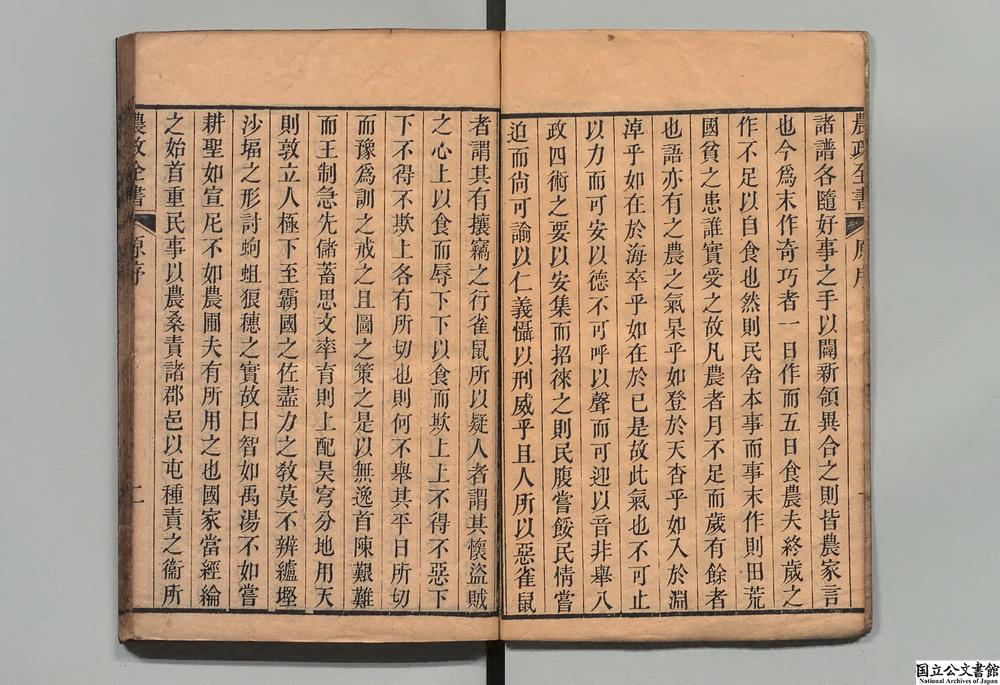 農政全書 原序
諸譜各隨好事之手以闢新領異合之則皆農家言
也今爲末作奇巧者一日作而五日食農夫終歲之
作不足以自食也然則民舍本事而事末作則田荒
國貧之患誰實受之故凡農者月不足而歲有餘者
也語亦有之農之氣杲乎如登於天杳乎如入於淵
淖乎如在於海卒乎如在於已是故此氣也不可止
以力而可安以德不可呼以聲而可迎以音非舉八
政四術之要以安集而招徠之則民腹嘗餒民情嘗
迫而尙可諭以仁義懾以刑威乎且人所以惡雀鼠
者謂其有攘竊之行雀鼠所以疑人者謂其懷盜賊
之心上以食而辱下下以食而欺上上不得不惡下
下不得不欺上各有所切也則何不舉其平日所切
而豫爲訓之戒之且圖之策之是以無逸首陳艱難
而王制急先儲蓄思文率育則上配昊穹分地用天
則敦立人極下至霸國之佐盡力之敎莫不辨纑壥
沙堛之形討蚼蛆狠穗之實故曰智如禹湯不如嘗
耕聖如宣尼不如農圃夫有所用之也國家當經綸
之始首重民事以農桑責諸郡邑以屯種責之衞所
農政全書 原序 二
国立公文書館
National Archives of Japan